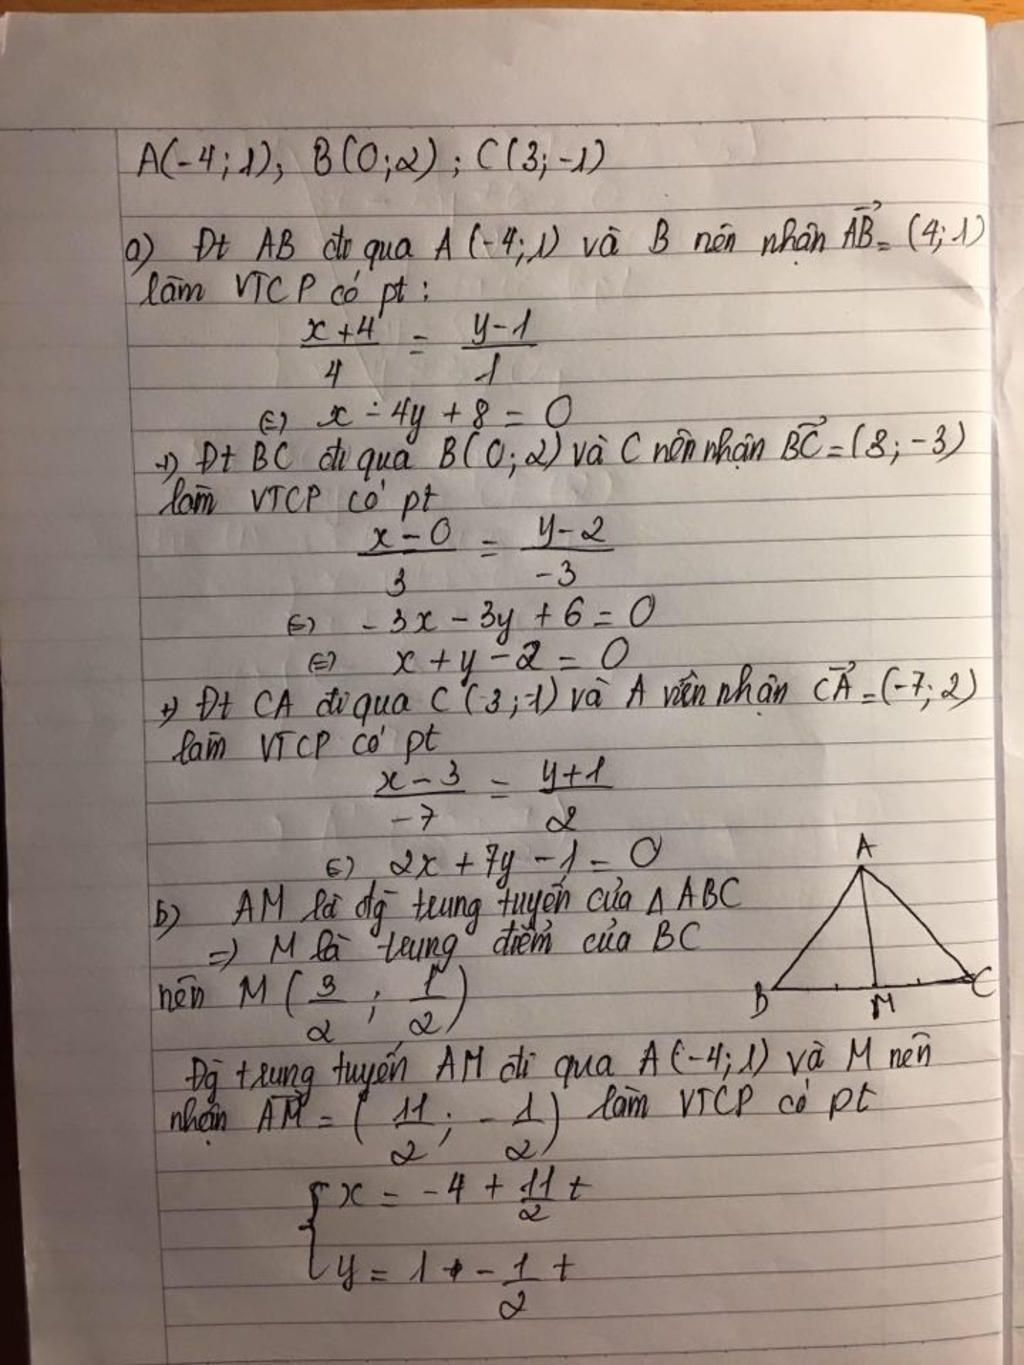 A(-4;1); B(0;2); C(3;-1)
a) Đt AB đi qua A(-4;1) và B nên nhận AB⃗ = (4;1)
làm VTCP có pt:
(x+4)/4 = (y-1)/1
⇔ x - 4y + 8 = 0
+) Đt BC đi qua B(0;2) và C nên nhận BC⃗ = (3;-3)
làm VTCP có pt
(x-0)/3 = (y-2)/-3
⇔ -3x - 3y + 6 = 0
⇔ x + y - 2 = 0
+) Đt CA đi qua C(3;-1) và A nên nhận CA⃗ = (-7;2)
làm VTCP có pt
(x-3)/-7 = (y+1)/2
⇔ 2x + 7y - 1 = 0
b) AM là đg trung tuyến của Δ ABC
⇒ M là trung điểm của BC
nên M(3/2; 1/2)
Đg trung tuyến AM đi qua A(-4;1) và M nên
nhận AM⃗ = (11/2; -1/2) làm VTCP có pt
{ x = -4 + 11/2 t
y = 1 + -1/2 t
A
B
M
C